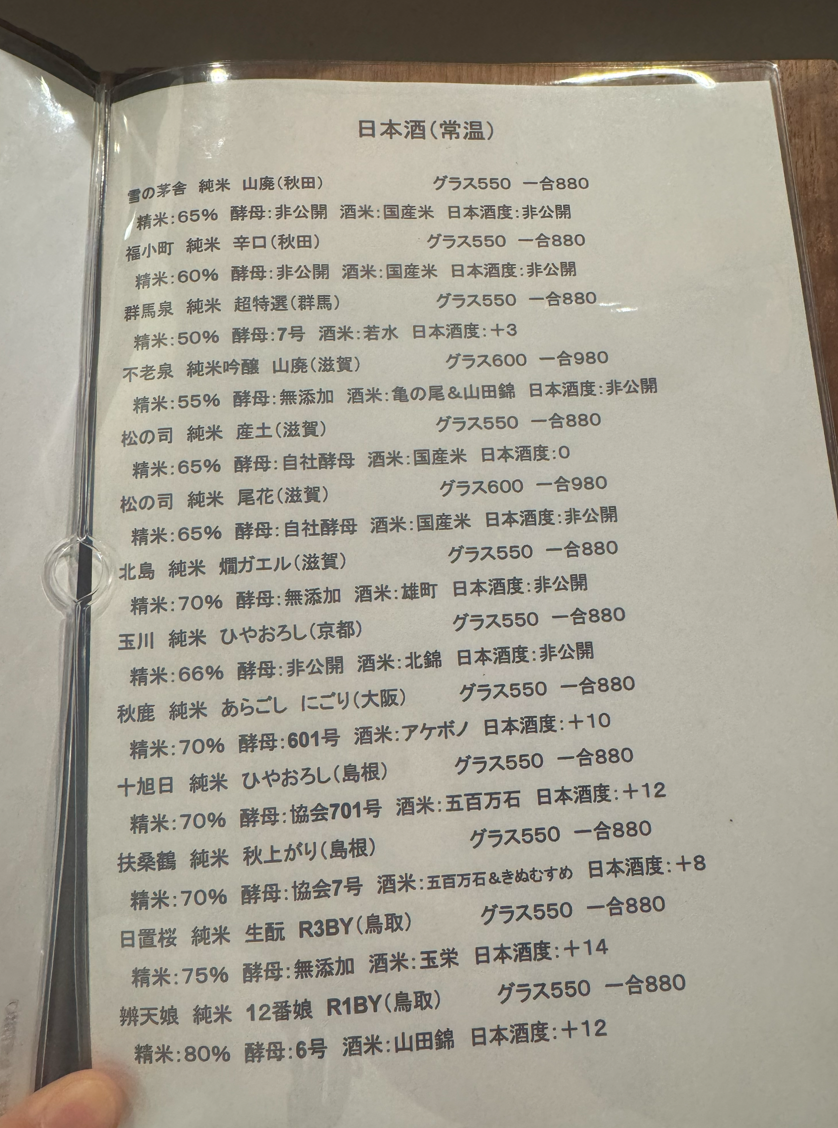 日本酒(常温)
雪の茅舎 純米 山廃(秋田) グラス550 一合880
精米:65% 酵母:非公開 酒米:国産米 日本酒度:非公開
福小町 純米 辛口(秋田) グラス550 一合880
精米:60% 酵母:非公開 酒米:国産米 日本酒度:非公開
群馬泉 純米 超特選(群馬) グラス550 一合880
精米:50% 酵母:7号 酒米:若水 日本酒度:+3
不老泉 純米吟醸 山廃(滋賀) グラス600 一合980
精米:55% 酵母:無添加 酒米:亀の尾&山田錦 日本酒度:非公開
松の司 純米 産土(滋賀) グラス550 一合880
精米:65% 酵母:自社酵母 酒米:国産米 日本酒度:0
松の司 純米 尾花(滋賀) グラス600 一合980
精米:65% 酵母:自社酵母 酒米:国産米 日本酒度:非公開
北島 純米 燗ガエル(滋賀) グラス550 一合880
精米:70% 酵母:無添加 酒米:雄町 日本酒度:非公開
玉川 純米 ひやおろし(京都) グラス550 一合880
精米:66% 酵母:非公開 酒米:北錦 日本酒度:非公開
秋鹿 純米 あらごし にごり(大阪) グラス550 一合880
精米:70% 酵母:601号 酒米:アケボノ 日本酒度:+10
十旭日 純米 ひやおろし(島根) グラス550 一合880
精米:70% 酵母:協会701号 酒米:五百万石 日本酒度:+12
扶桑鶴 純米 秋上がり(島根) グラス550 一合880
精米:70% 酵母:協会7号 酒米:五百万石&きぬむすめ 日本酒度:+8
日置桜 純米 生酛 R3BY(鳥取) グラス550 一合880
精米:75% 酵母:無添加 酒米:玉栄 日本酒度:+14
辨天娘 純米 12番娘 R1BY(鳥取) グラス550 一合880
精米:80% 酵母:6号 酒米:山田錦 日本酒度:+12